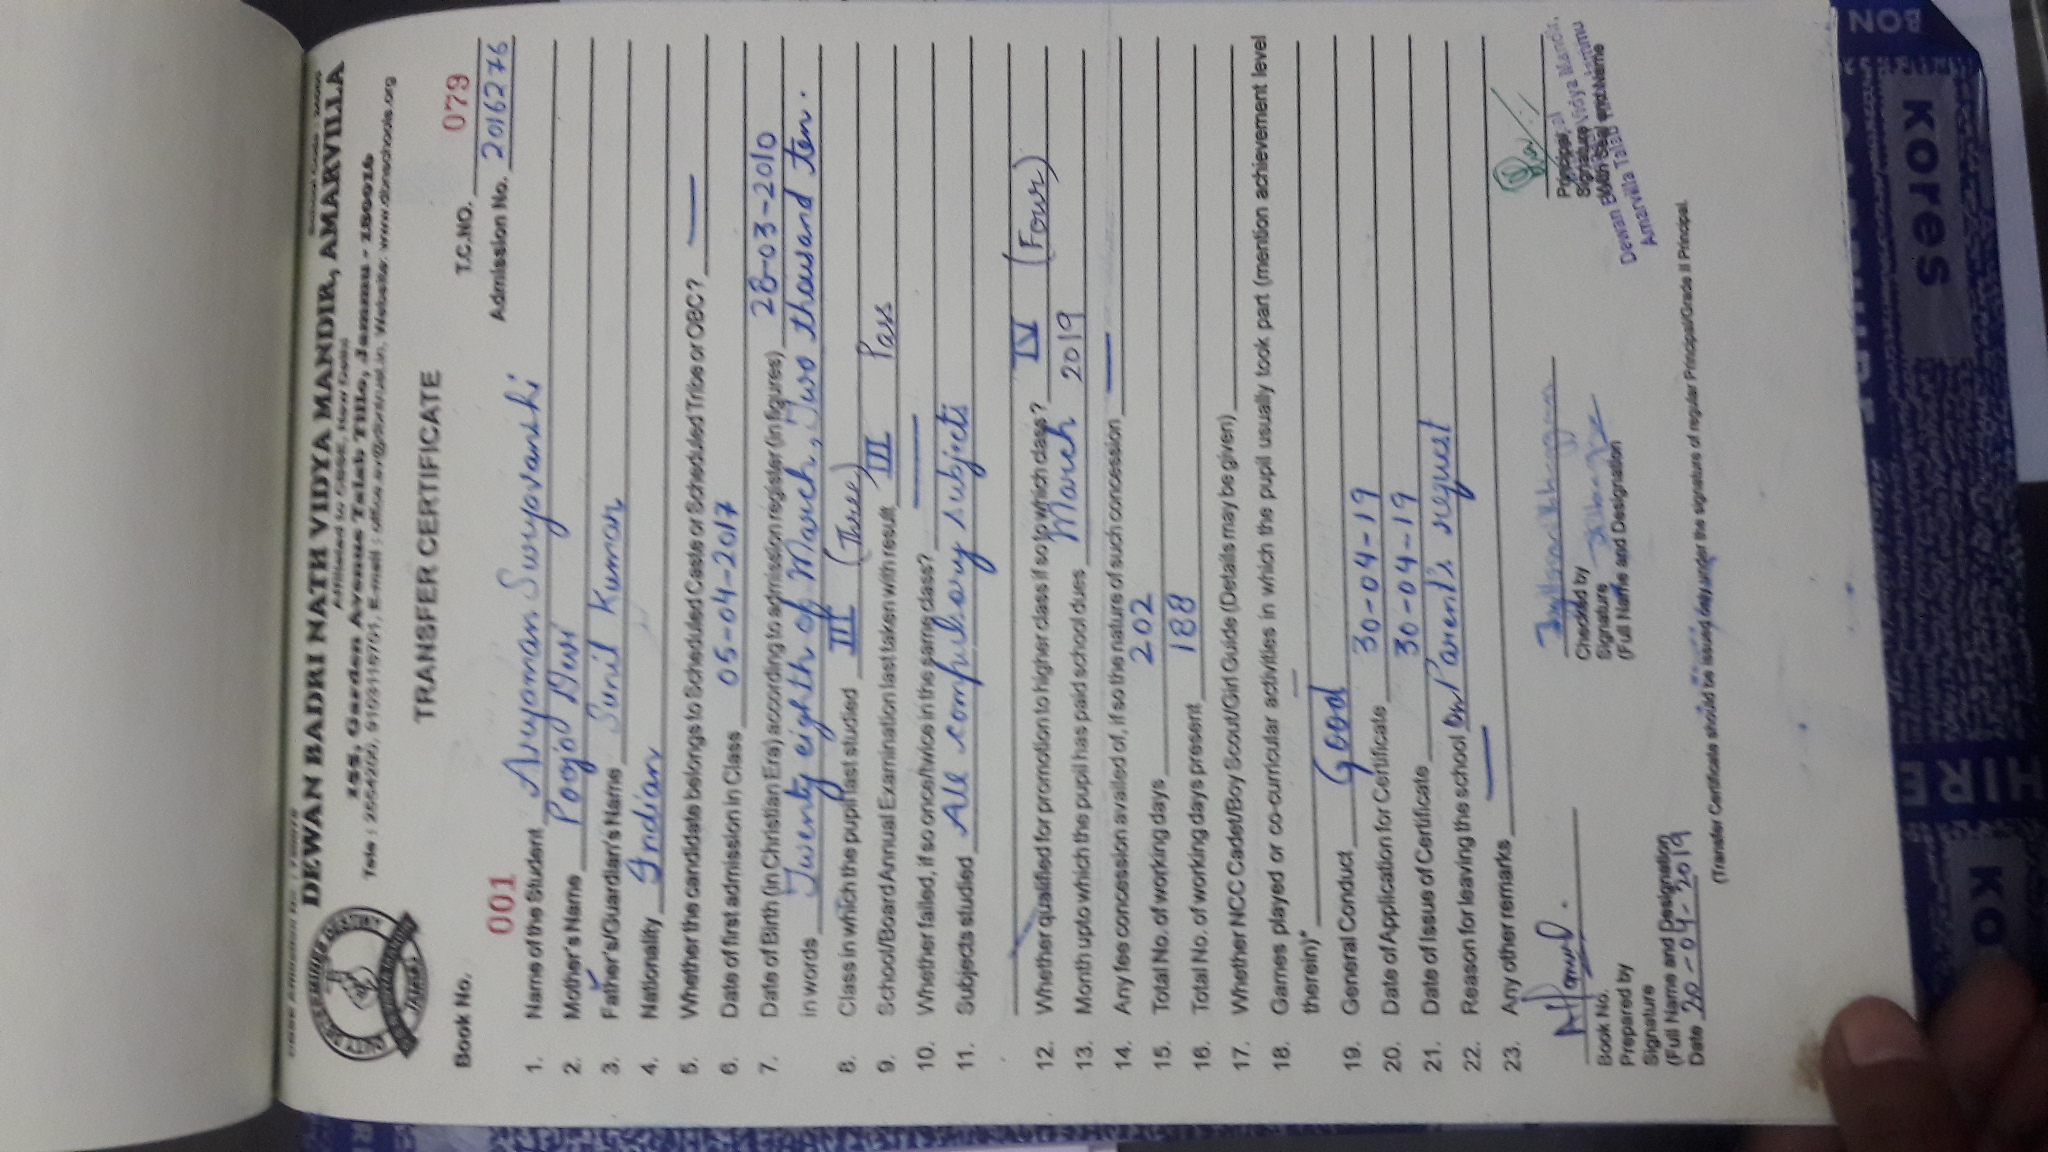 DEWAN BADRI NATH VIDYA MANDIR, AMARVILLA
Affiliated to CBSE, New Delhi
155, Garden Avenue Talab Tillo, Jammu - 180016
Website: www.dbnschools.org
TRANSFER CERTIFICATE
Book No. 001 T.C.NO. 079
Admission No. 2016276
1. Name of the Student Aryaman Suryavanshi
2. Mother's Name Pooja Devi
3. Father's/Guardian's Name Sunil Kumar
4. Nationality Indian
5. Whether the candidate belongs to Scheduled Caste or Scheduled Tribe or OBC? —
6. Date of first admission in Class 05-04-2017
7. Date of Birth (in Christian Era) according to admission register (in figures) 28-03-2010
in words Twenty eighth of March, Two thousand ten.
8. Class in which the pupil last studied III (Three)
9. School/Board Annual Examination last taken with result III Pass
10. Whether failed, if so once/twice in the same class? —
11. Subjects studied All compulsory subjects
12. Whether qualified for promotion to higher class if so to which class? IV (Four)
13. Month upto which the pupil has paid school dues March 2019
14. Any fee concession availed of, if so the nature of such concession —
15. Total No. of working days 202
16. Total No. of working days present 188
17. Whether NCC Cadet/Boy Scout/Girl Guide (Details may be given)
18. Games played or co-curricular activities in which the pupil usually took part (mention achievement level
therein)* —
19. General Conduct Good
20. Date of Application for Certificate 30-04-19
21. Date of Issue of Certificate 30-04-19
22. Reason for leaving the school On Parent's request
23. Any other remarks —
Book No.
Prepared by
Signature
(Full Name and Designation
Date 20-04-2019
Checked by
Signature
(Full Name and Designation
Principal
Signature
With Seal and Name
Amarvilla Talab Tillo Jammu
(Transfer Certificate should be issued only under the signature of regular Principal/Grade II Principal.
kores
BON
HIRE
KO